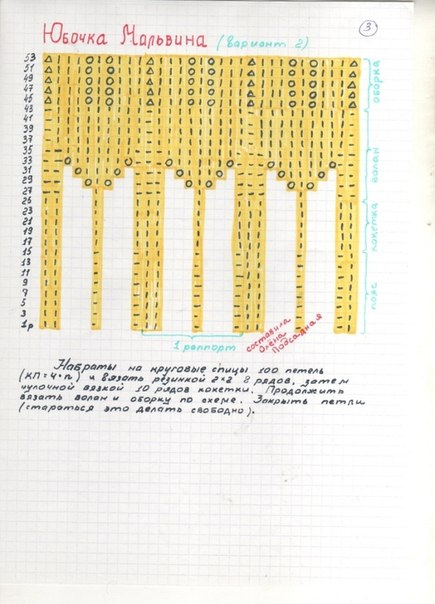 3
Юбочка Мальвина (вариант 2)
53
51
49
47
45
43
41
39
37
35
33
31
29
27
26
23
21
19
17
15
13
11
9
7
5
3
1р
оборка
волан
кокетка
пояс
1 раппорт
составила
Олена
Подсадная
Набрать на круговые спицы 100 петель
(КП=4·n) и вязать резинкой 2*2 8 рядов, затем
чулочной вязкой 10 рядов кокетки. Продолжить
вязать волан и оборку по схеме. Закрыть петли
(стараться это делать свободно).